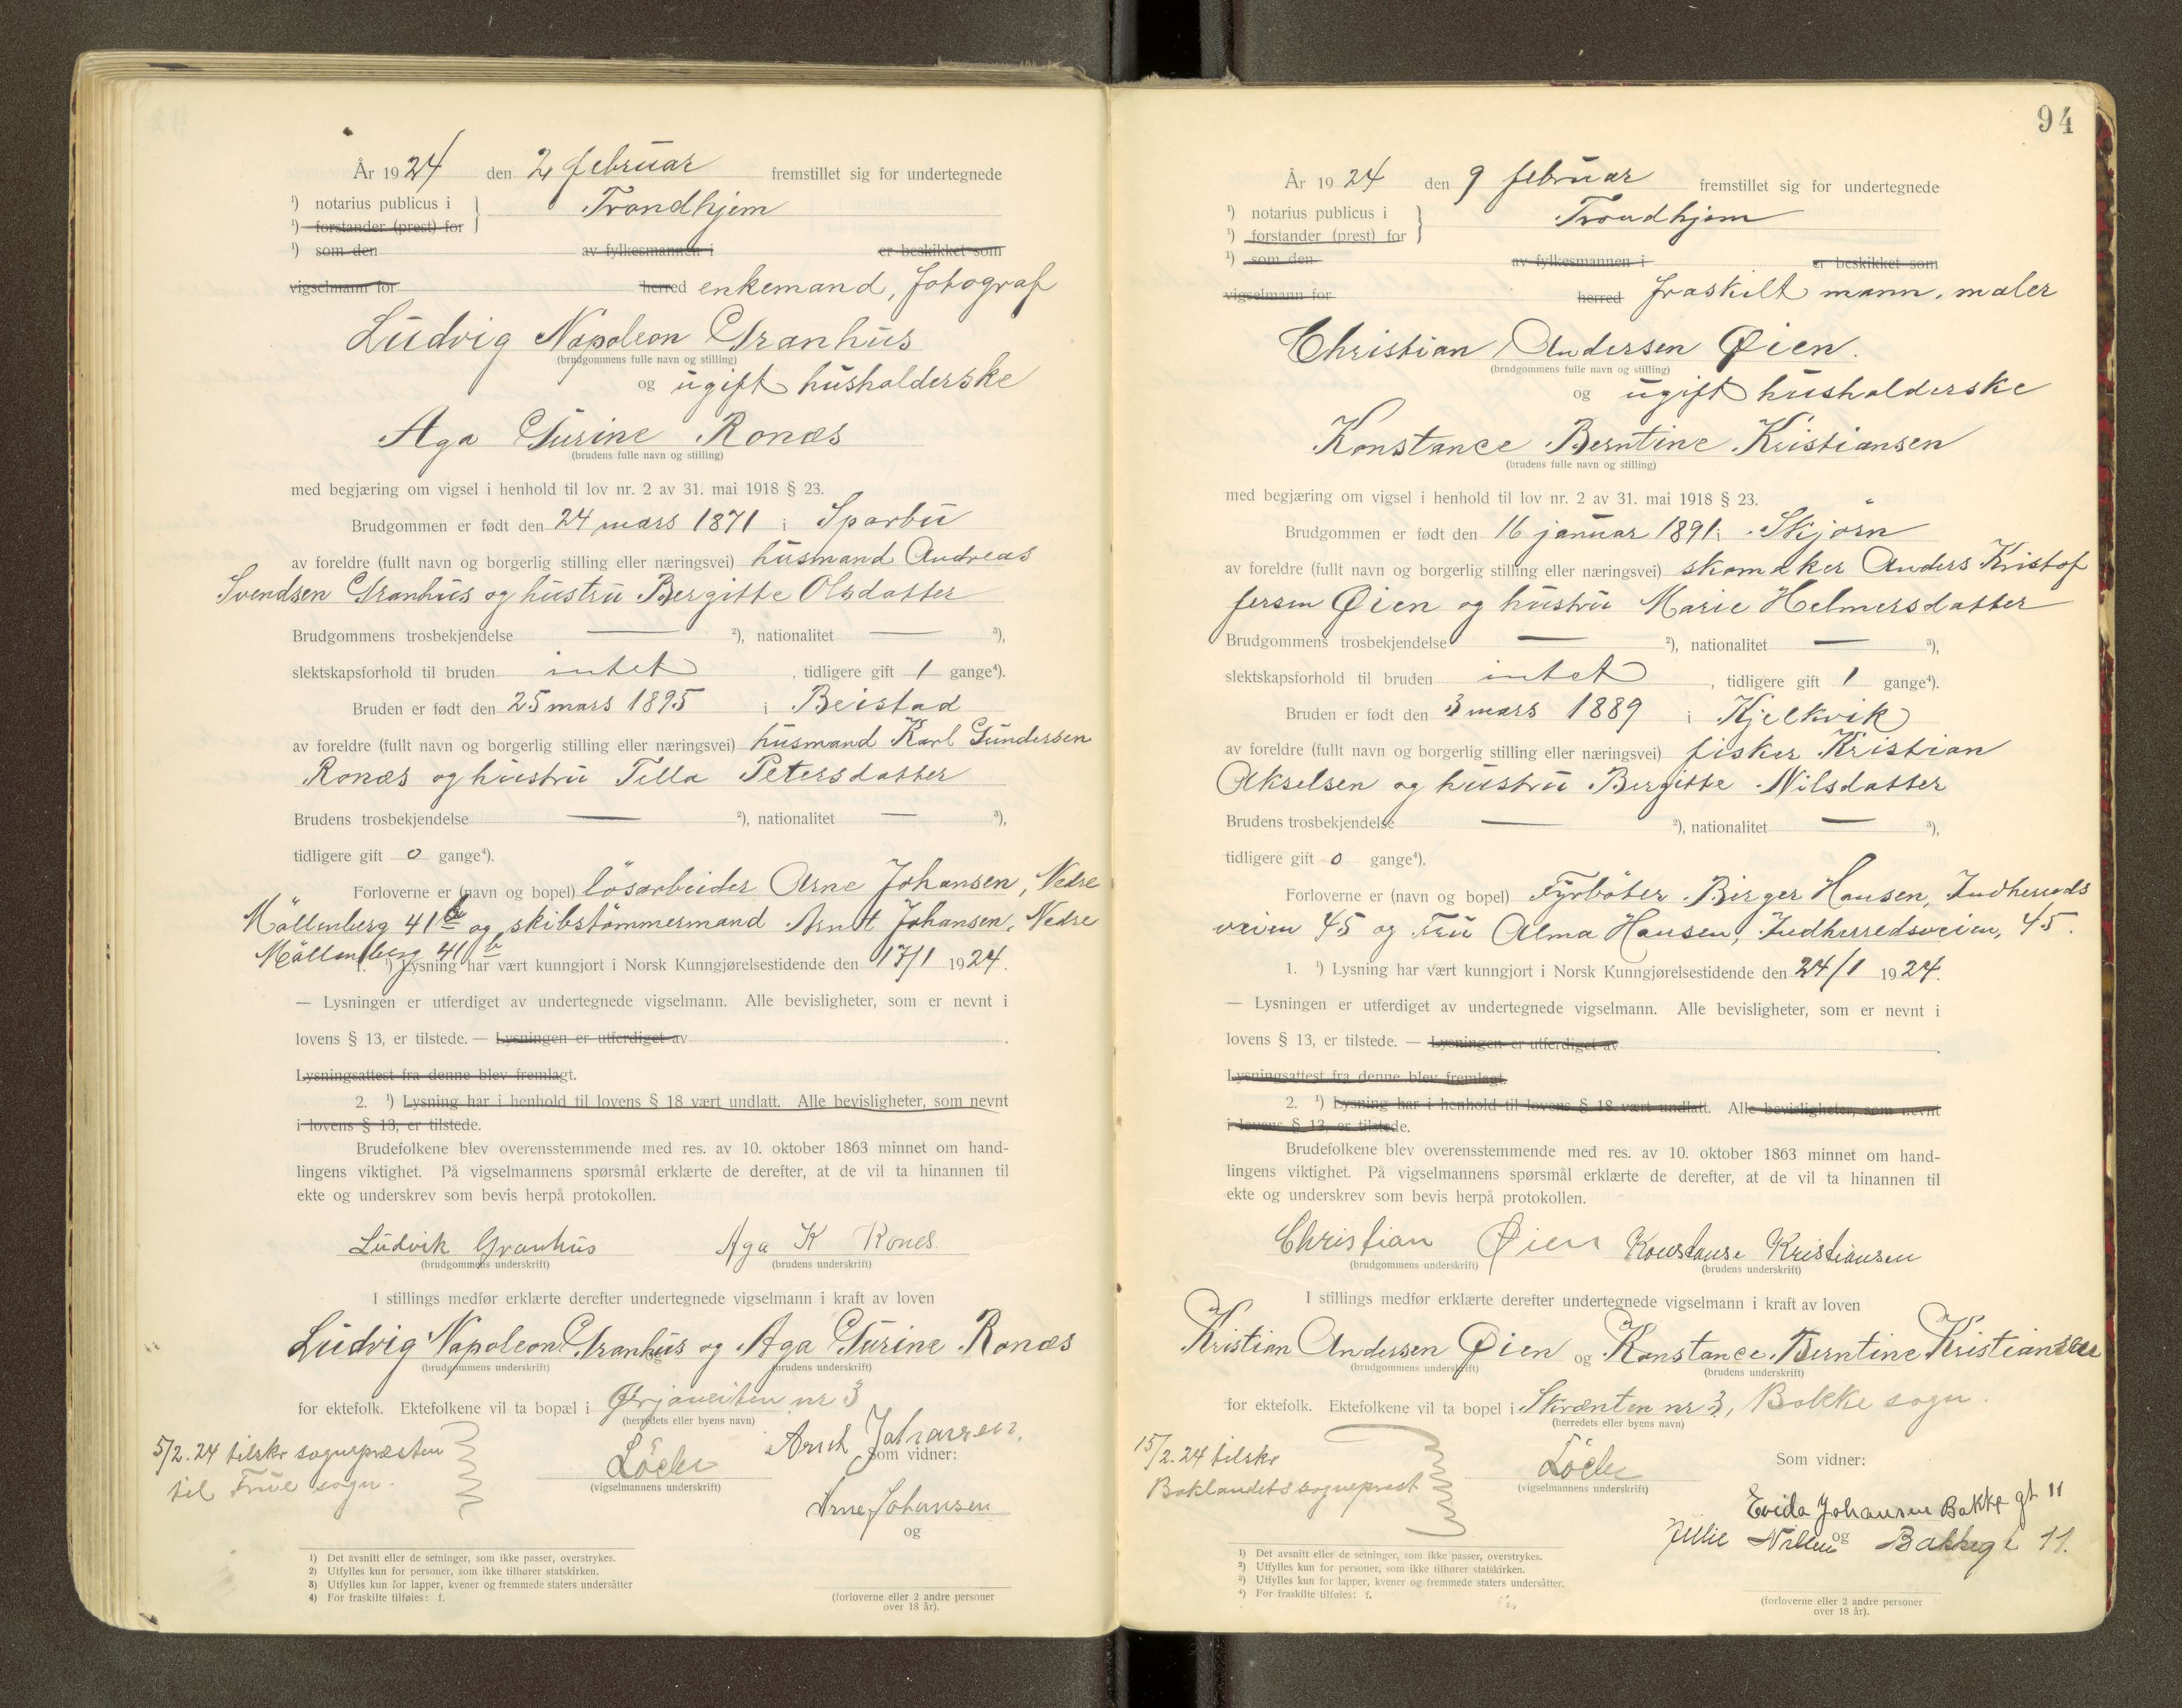 År 1924 den 2 februar fremstillet sig for undertegnede
¹) notarius publicus i Trondhjem
¹) forstander (prest) for
¹) som den av fylkesmannen i er beskikket som
vigselmann for herred enkemand, fotograf
Ludvig Napoleon Granhus
(brudgommens fulle navn og stilling)
og ugift husholderske
Aga Gurine Ronæs
(brudens fulle navn og stilling)
med begjæring om vigsel i henhold til lov nr. 2 av 31. mai 1918 § 23.
Brudgommen er født den 24 mars 1871 i Sparbu
av foreldre (fullt navn og borgerlig stilling eller næringsvei) husmand Andreas
Svendsen Granhus og hustru Bergitte Olsdatter
Brudgommens trosbekjendelse — ²), nationalitet — ³),
slektskapsforhold til bruden intet, tidligere gift 1 gange⁴).
Bruden er født den 25 mars 1895 i Beistad
av foreldre (fullt navn og borgerlig stilling eller næringsvei) husmand Karl Gundersen
Ronæs og hustru Tella Petersdatter
Brudens trosbekjendelse — ²), nationalitet — ³),
tidligere gift 0 gange⁴).
Forloverne er (navn og bopel) lösarbeider Arne Johansen, Nedre
Möllenberg 41 b og skibstömmermand Arndt Johansen, Nedre
Möllenberg 41 b
1. ¹) Lysning har vært kunngjort i Norsk Kunngjørelsestidende den 17/1 1924.
— Lysningen er utferdiget av undertegnede vigselmann. Alle bevisligheter, som er nevnt i
lovens § 13, er tilstede. — Lysningen er utferdiget av
Lysningsattest fra denne blev fremlagt.
2. ¹) Lysning har i henhold til lovens § 18 vært undlatt. Alle bevisligheter, som nevnt
i lovens § 13, er tilstede.
Brudefolkene blev overensstemmende med res. av 10. oktober 1863 minnet om hand-
lingens viktighet. På vigselmannens spørsmål erklærte de derefter, at de vil ta hinannen til
ekte og underskrev som bevis herpå protokollen.
Ludvik Granhus Aga K Rones.
(brudgommens underskrift) (brudens underskrift)
I stillings medfør erklærte derefter undertegnede vigselmann i kraft av loven
Ludvig Napoleon Granhus og Aga Gurine Ronæs
(brudgommens underskrift) (brudens underskrift)
for ektefolk. Ektefolkene vil ta bopæl i Ørjaveiten nr 3
(herredets eller byens navn)
Arnt Johansen.
5/2.24 tilskr sognepræsten
Som vidner:
til Frue sogn.
(vigselmannens underskrift)
Arne Johansen
og
1) Det avsnitt eller de setninger, som ikke passer, overstrykes.
2) Utfylles kun for personer, som ikke tilhører statskirken.
3) Utfylles kun for lapper, kvener og fremmede staters undersåtter
4) For fraskilte tilføies: f.
(forloverne eller 2 andre personer
over 18 år).
94
År 1924 den 9 februar fremstillet sig for undertegnede
¹) notarius publicus i Trondhjem
¹) forstander (prest) for
¹) som den av fylkesmannen i er beskikket som
vigselmann for herred fraskilt mann, maler
Christian Andersen Øien.
(brudgommens fulle navn og stilling)
og ugift husholderske
Konstance Berntine Kristiansen
(brudens fulle navn og stilling)
med begjæring om vigsel i henhold til lov nr. 2 av 31. mai 1918 § 23.
Brudgommen er født den 16 januar 1891 i Skjörn
av foreldre (fullt navn og borgerlig stilling eller næringsvei) skomaker Anders Kristof
fersen Øien og hustru Marie Helmersdatter
Brudgommens trosbekjendelse — ²), nationalitet — ³),
slektskapsforhold til bruden intet, tidligere gift 1 gange⁴).
Bruden er født den 3 mars 1889 i Kjelkvik
av foreldre (fullt navn og borgerlig stilling eller næringsvei) fisker Kristian
Akselsen og hustru Bergitte Nilsdatter
Brudens trosbekjendelse — ²), nationalitet — ³),
tidligere gift 0 gange⁴).
Forloverne er (navn og bopel) Fyrböter Birger Hansen, Indherreds
veien 45 og Fru Alma Hansen, Indherredsveien, 45.
1. ¹) Lysning har vært kunngjort i Norsk Kunngjørelsestidende den 24/1 1924.
— Lysningen er utferdiget av undertegnede vigselmann. Alle bevisligheter, som er nevnt i
lovens § 13, er tilstede. — Lysningen er utferdiget av
Lysningsattest fra denne blev fremlagt.
2. ¹) Lysning har i henhold til lovens § 18 vært undlatt. Alle bevisligheter, som nevnt
i lovens § 13, er tilstede.
Brudefolkene blev overensstemmende med res. av 10. oktober 1863 minnet om hand-
lingens viktighet. På vigselmannens spørsmål erklærte de derefter, at de vil ta hinannen til
ekte og underskrev som bevis herpå protokollen.
Christian Øien Konstanse Kristiansen
(brudgommens underskrift) (brudens underskrift)
I stillings medfør erklærte derefter undertegnede vigselmann i kraft av loven
Kristian Andersen Øien og Konstance Berntine Kristiansen
(brudgommens underskrift) (brudens underskrift)
for ektefolk. Ektefolkene vil ta bopel i Skrænten nr 3, Bakke sogn.
(herredets eller byens navn)
15/2.24 tilskr
Som vidner:
Baklandets sogneprest
(vigselmannens underskrift)
Evida Johansen Bakke gt 11
og Bakkegt 11.
1) Det avsnitt eller de setninger, som ikke passer, overstrykes.
2) Utfylles kun for personer, som ikke tilhører statskirken.
3) Utfylles kun for lapper, kvener og fremmede staters undersåtter.
4) For fraskilte tilføies: f.
(forloverne eller 2 andre personer
over 18 år).